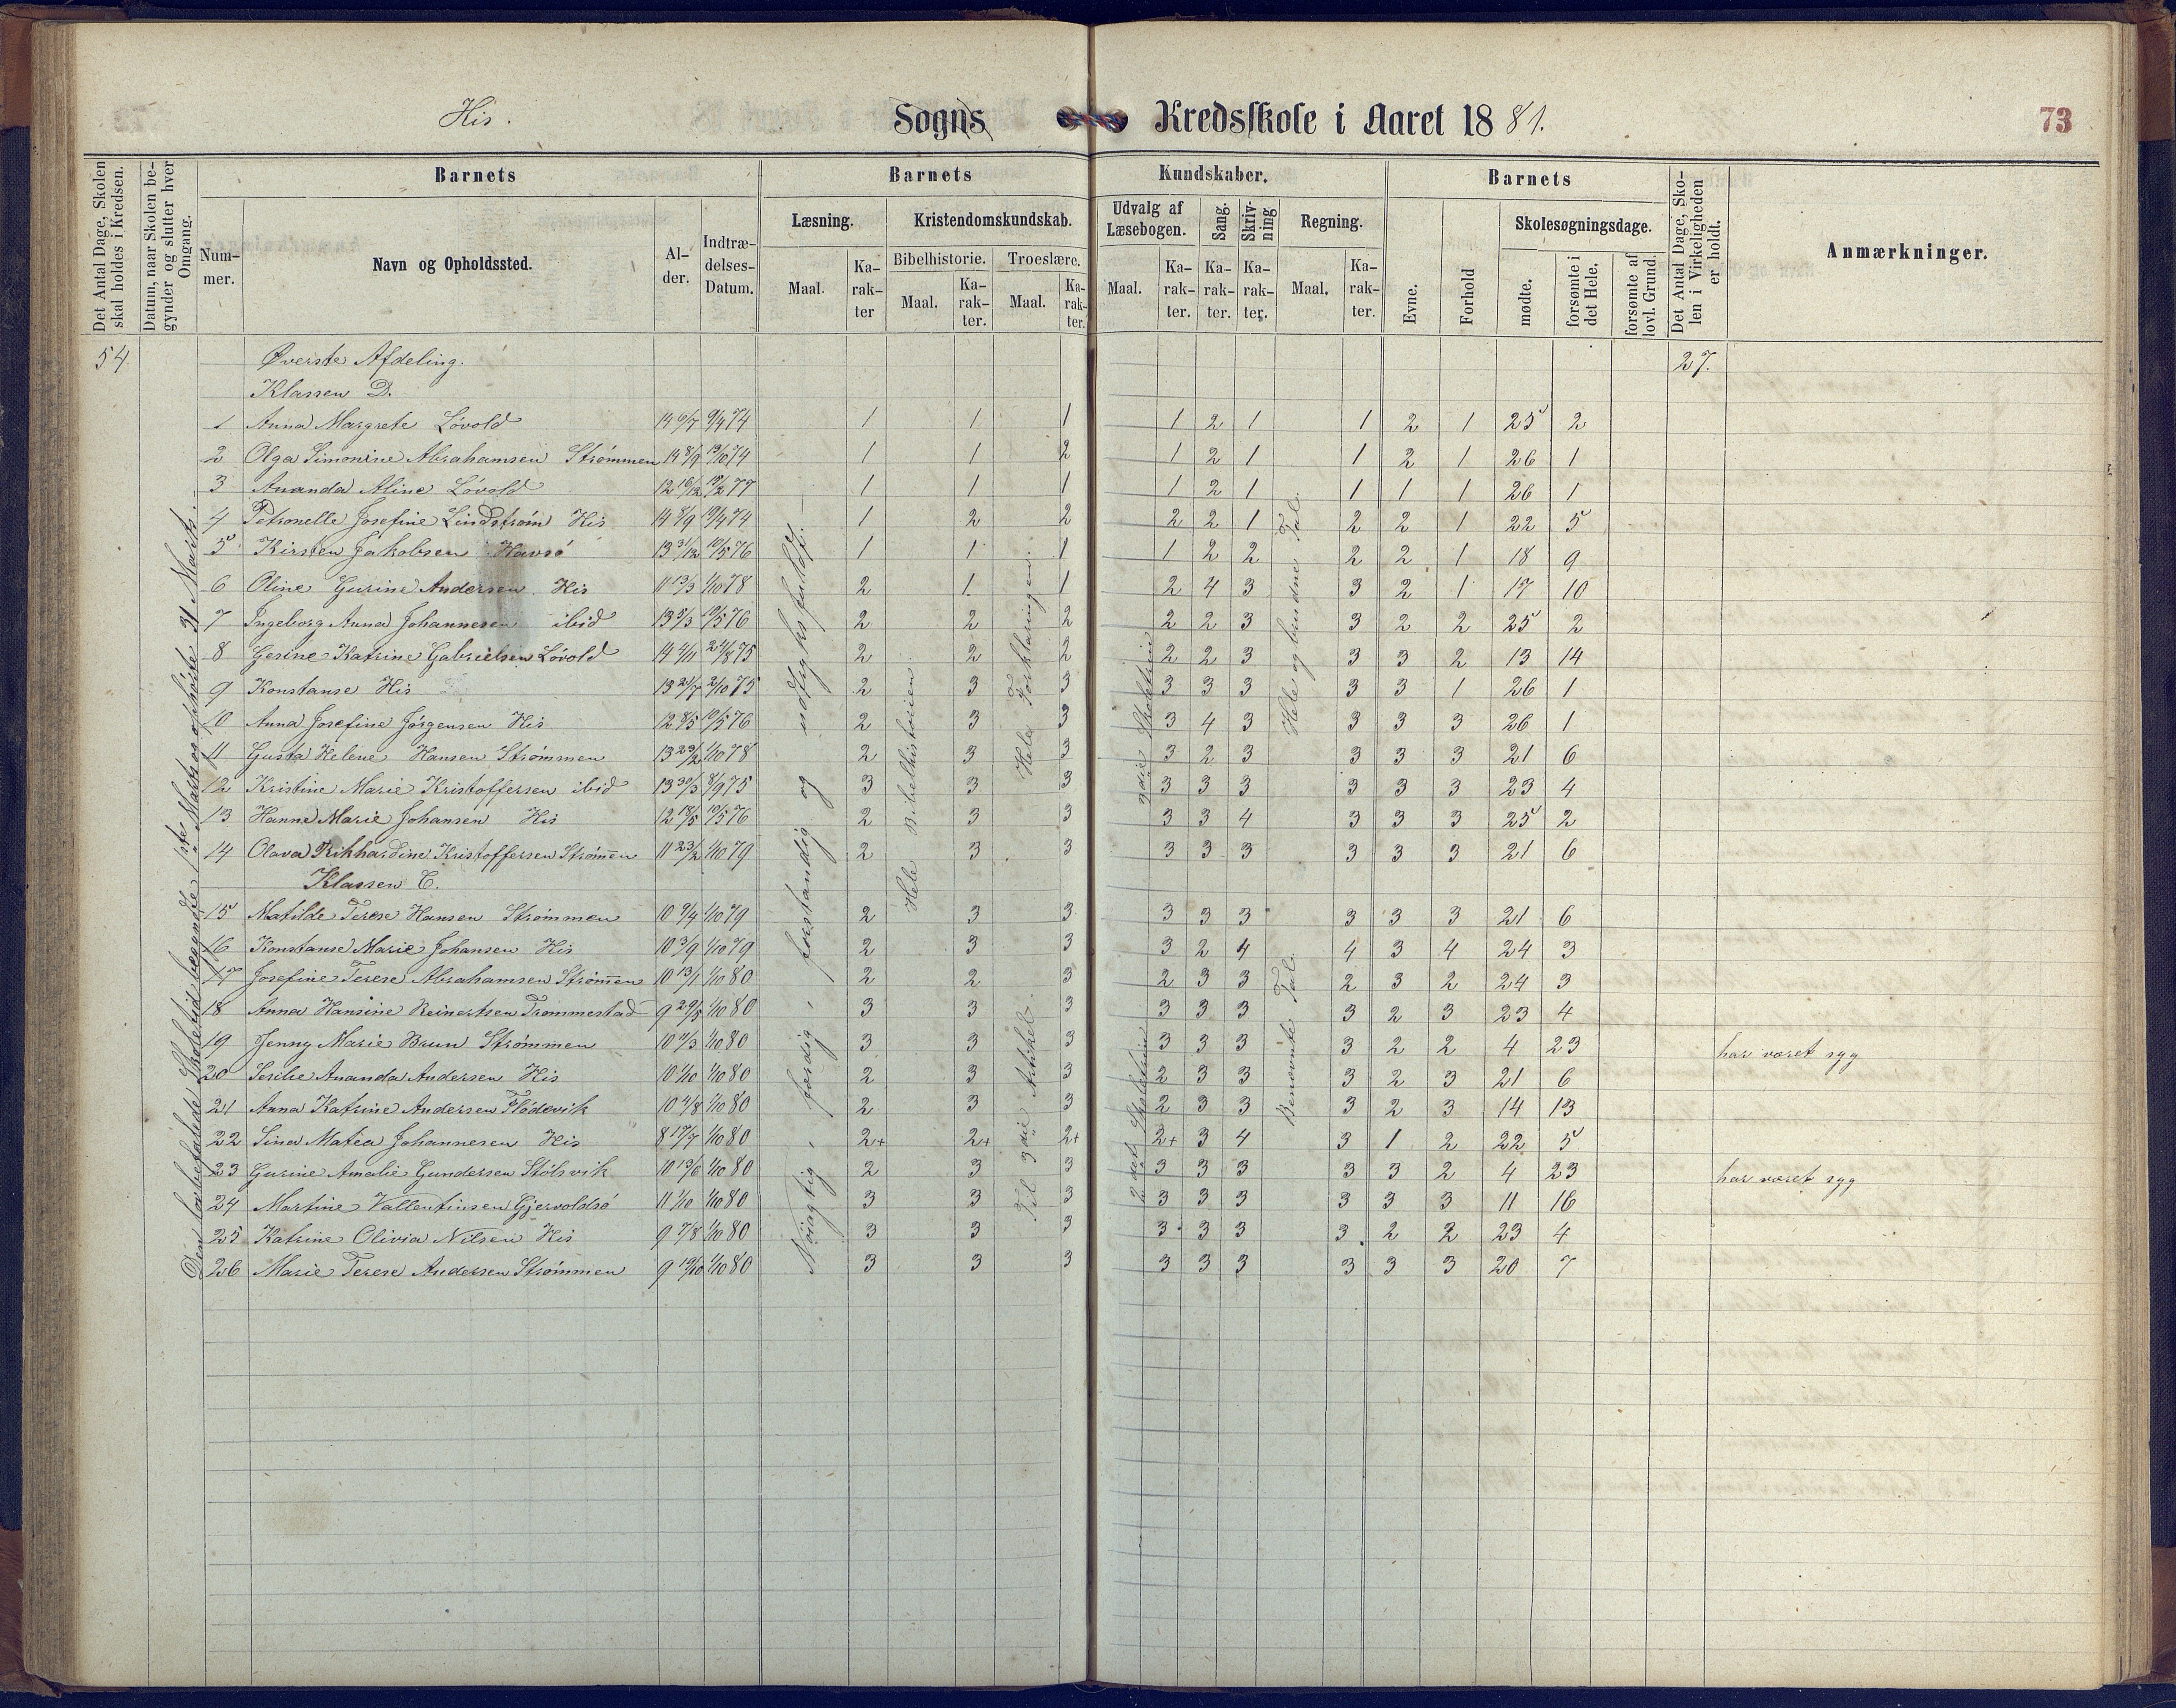 His. Sogns Kredsskole i Aaret 1881. 73
Det Antal Dage, Skolen skal holdes i Kredsen.
Datum, naar Skolen begynder og slutter hver Omgang.
Barnets Barnets Kundskaber. Barnets
Det Antal Dage, Skolen i Virkeligheden er holdt.
Anmærkninger.
Nummer. Navn og Opholdssted. Alder. Indtrædelses-Datum.
Læsning. Kristendomskundskab. Udvalg af Læsebogen. Sang. Skrivning Regning. Skolesøgningsdage.
Bibelhistorie. Troeslære.
Maal. Karakter Maal. Karakter. Maal. Karakter. Maal. Karakter. Karakter. Karakter. Maal. Karakter. Evne. Forhold mødte. forsømte i det Hele. forsømte af lovl. Grund.
54 Øverste Afdeling. 27.
Klassen D.
1 Anna Margrete Lövold 14 6/7 9/4 74 1 1 1 1 2 1 1 2 1 25 2
2 Olga Simonine Abrahamsen Strømmen 14 8/9 13/10 74 1 1 2 1 2 1 1 2 1 26 1
3 Ananda Aline Lövold 12 16/12 19/2 77 1 1 1 1 2 1 1 1 1 26 1
4 Petronelle Josefine Lindstrøm His 14 8/9 19/4 74 1 2 2 2 2 1 2 2 1 22 5
5 Kirsten Jakobsen Havsö 13 31/12 10/5 76 1 1 1 1 2 2 2 2 1 18 9
6 Oline Gurine Andersen His 11 13/3 1/10 78 2 1 1 2 4 3 3 2 1 17 10
7 Ingeborg Anna Johannesen ibid 13 5/3 10/5 76 2 2 2 2 2 3 3 2 2 25 2
8 Gesine Katrine Gabrielsen Lövold 14 4/11 24/8 75 2 2 2 2 2 3 3 3 2 13 14
9 Konstanse His 13 21/7 2/10 75 2 3 3 3 3 3 3 3 1 26 1
10 Anna Josefine Jörgensen His 12 8/5 10/5 76 2 3 3 3 4 3 3 3 3 26 1
11 Gusta Helene Hansen Strømmen 13 23/2 1/10 78 2 3 3 3 2 3 3 3 3 21 6
12 Kristine Marie Kristoffersen ibid 13 30/3 8/9 75 3 3 3 3 3 3 3 3 3 23 4
13 Hanne Marie Johansen His 12 18/5 10/5 76 2 3 3 3 3 4 3 3 3 25 2
14 Olava Rikhardine Kristoffersen Strømen 11 23/2 1/10 79 2 3 3 3 3 3 3 3 3 21 6
Klassen C.
15 Matilde Terese Hansen Strømmen 10 9/4 1/10 79 2 3 3 3 3 3 3 3 3 21 6
16 Konstanse Marie Johansen His 10 3/9 1/10 79 2 3 3 3 2 4 4 3 4 24 3
17 Josefine Terese Abrahamsen Strømen 10 13/1 1/10 80 2 2 3 2 3 3 2 3 2 24 3
18 Anna Hansine Reinertsen Trommestad 9 29/5 1/10 80 3 3 3 3 3 3 3 2 3 23 4
19 Jenny Marie Brun Strömmen 10 11/3 1/10 80 3 3 3 3 3 3 3 2 2 4 23 har været syg
20 Ananda Andersen His 10 1/10 1/10 80 2 3 3 2 3 3 3 2 3 21 6
21 Anna Katrine Andersen Flödevik 10 4/8 1/10 80 2 3 3 2 3 3 3 2 3 14 13
22 Sina Matea Johannesen His 8 17/7 1/10 80 2+ 2+ 2+ 2+ 3 4 3 1 2 22 5
23 Gurine Amalie Gundersen Stölsvik 10 19/6 1/10 80 2 3 3 3 3 3 3 3 2 4 23 har været syg
24 Martine Vallentinsen Gjervoldsö 11 1/10 1/10 80 3 3 3 3 3 3 3 3 3 11 16
25 Katrine Olivia Nilsen His 9 7/8 1/10 80 3 3 3 3 3 3 3 2 2 23 4
26 Marie Terese Andersen Strømmen 9 19/10 1/10 80 3 3 3 3 3 3 3 3 3 20 7
Den lovbefalede Skoletid begyndte 1ste Marts og ophörte 31 Marts.
Nöiagtig, færdig, forstandig og indtryksfuldt.
Hele Bibelhistorien.
Hele Forklaringen.
Til 3die Artikel.
3die Skoletrin
2det Skoletrin
Hele og brudne Tal.
Benævnte Tal.